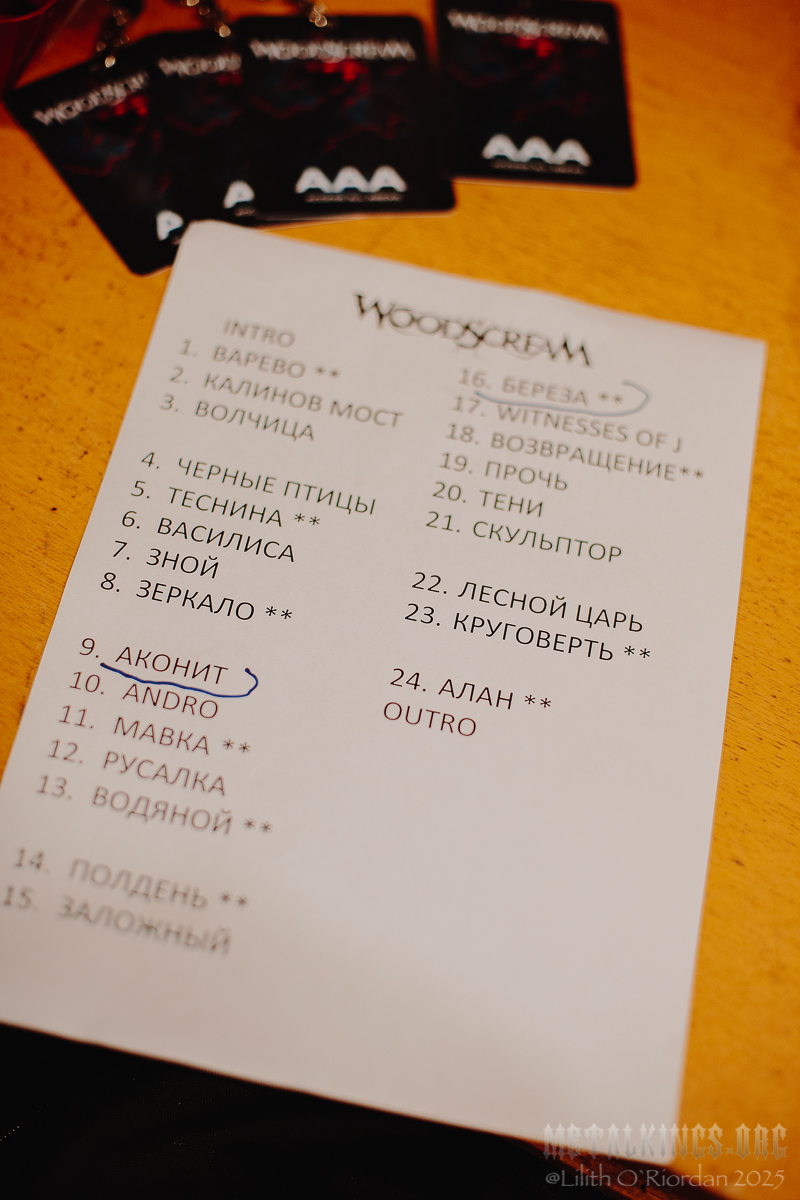 WOODSCREAM
WOODSCREAM
WOODSCREAM
AAA
AAA
WOODSCREAM
INTRO
1. ВАРЕВО **
2. КАЛИНОВ МОСТ
3. ВОЛЧИЦА
4. ЧЕРНЫЕ ПТИЦЫ
5. ТЕСНИНА **
6. ВАСИЛИСА
7. ЗНОЙ
8. ЗЕРКАЛО **
9. АКОНИТ
10. ANDRO
11. МАВКА **
12. РУСАЛКА
13. ВОДЯНОЙ **
14. ПОЛДЕНЬ **
15. ЗАЛОЖНЫЙ
16. БЕРЕЗА **
17. WITNESSES OF J
18. ВОЗВРАЩЕНИЕ**
19. ПРОЧЬ
20. ТЕНИ
21. СКУЛЬПТОР
22. ЛЕСНОЙ ЦАРЬ
23. КРУГОВЕРТЬ **
24. АЛАН **
OUTRO
METALKINGS.ORG
@Lilith O`Riordan 2025